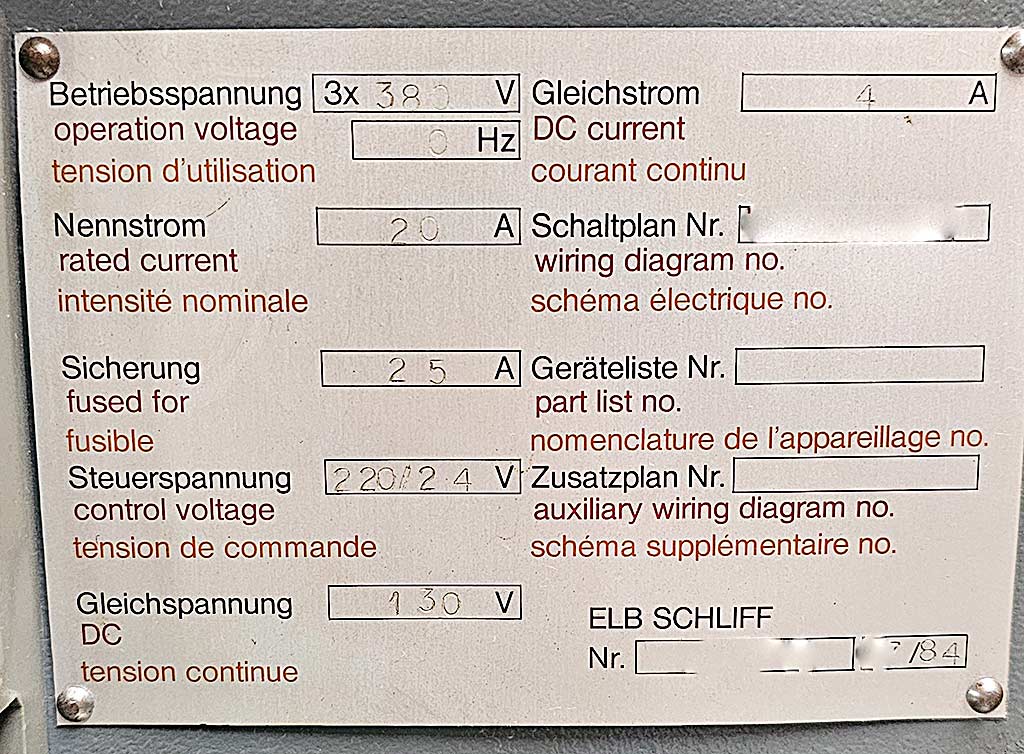 Betriebsspannung 3x 380 V
operation voltage 0 Hz
tension d'utilisation
Nennstrom 20 A
rated current
intensité nominale
Sicherung 25 A
fused for
fusible
Steuerspannung 220/24 V
control voltage
tension de commande
Gleichspannung 130 V
DC
tension continue
Gleichstrom 4 A
DC current
courant continu
Schaltplan Nr.
wiring diagram no.
schéma électrique no.
Geräteliste Nr.
part list no.
nomenclature de l'appareillage no.
Zusatzplan Nr.
auxiliary wiring diagram no.
schéma supplémentaire no.
ELB SCHLIFF
Nr. /84